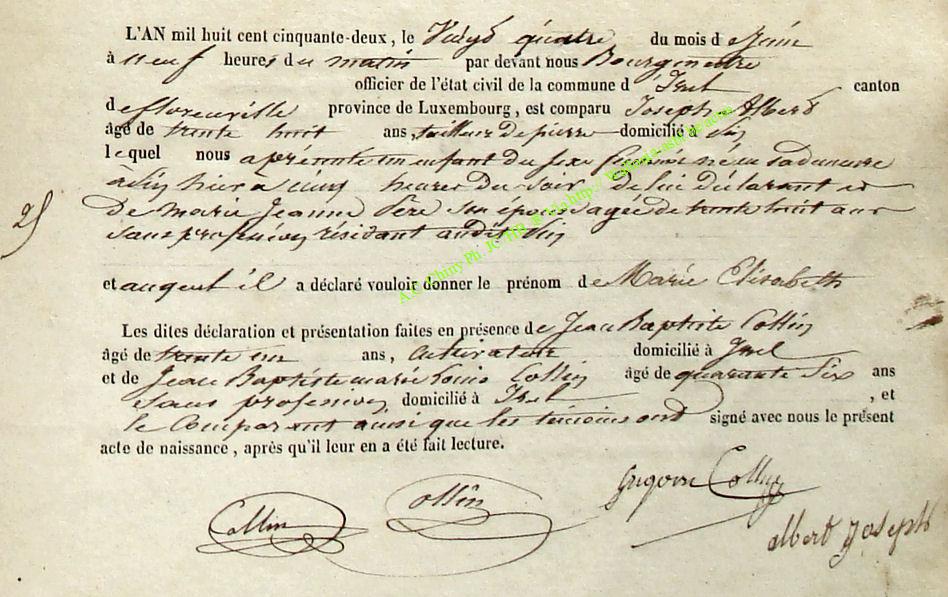 L'AN mil huit cent cinquante-deux, le Vingt quatre du mois d e Juin
à neuf heures du matin par devant nous Bourgmestre
officier de l'état civil de la commune d' Izel canton
de florenville province de Luxembourg, est comparu Joseph Albert
âgé de trente huit ans, tailleur de pierre domicilié à
lequel nous a présenté un enfant du sexe feminin né en sa demeure
hier à cinq heures du soir de lui déclarant et
de marie Jeanne son épouse agée de trente huit ans
sans profession résidant audit
25
et auquel il a déclaré vouloir donner le prénom de Marie Elisabeth
Les dites déclaration et présentation faites en présence de Jean Baptiste Collin
âgé de trente un ans, cultivateur domicilié à Izel
et de Jean Baptiste marie Louis Collin âgé de quarante six ans
sans profession domicilié à Izel , et
le Comparant ainsi que les témoins ont signé avec nous le présent
acte de naissance, après qu'il leur en a été fait lecture.
Collin Collin Grégoire Collin
albert Joseph